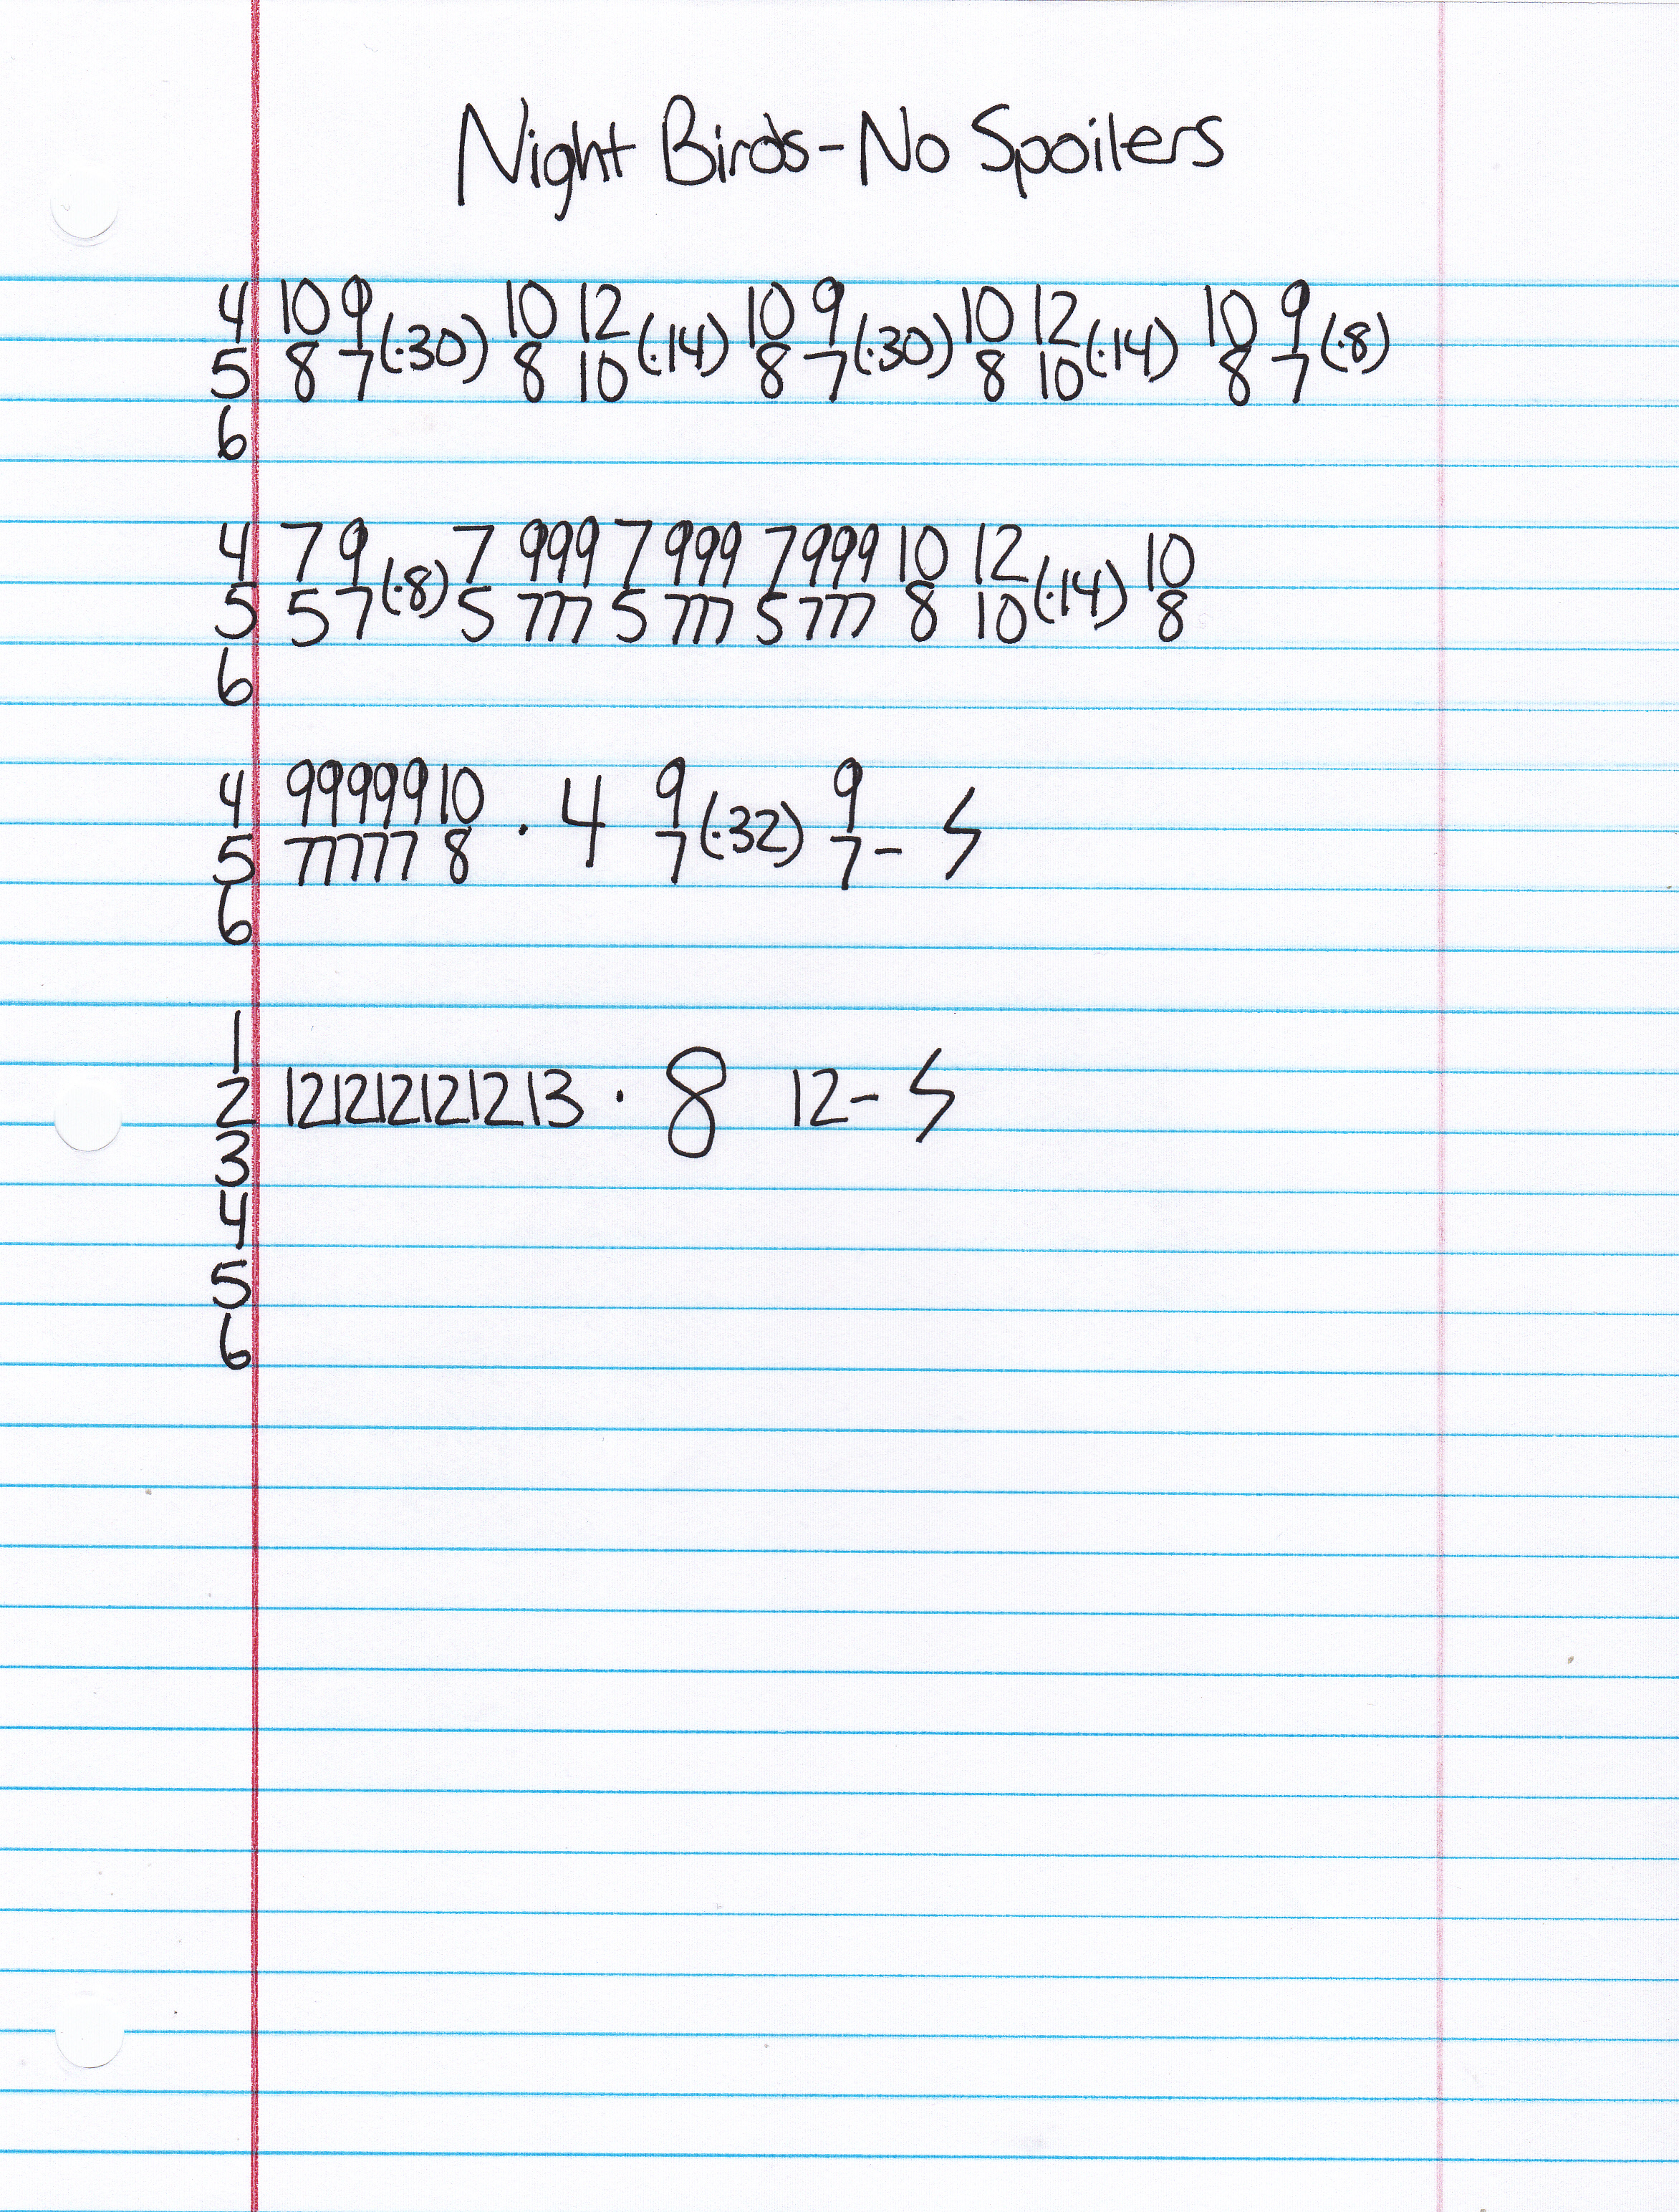 Night Birds - No Spoilers
4 10 9 (·30) 10 12 (·14) 10 9 (·30) 10 12 (·14) 10 9 (·8)
5 8 7 8 10 8 7 8 10 8 7
6
4 7 9 (·8) 7 999 7 999 7 999 10 12 (·14) 10
5 5 7 5 777 5 777 5 777 8 10 8
6
4 99999 10 · 4 9 (·32) 9
5 77777 8 7 7 -
6
1
2 12 12 12 12 12 13 · 8 12 -
3
4
5
6